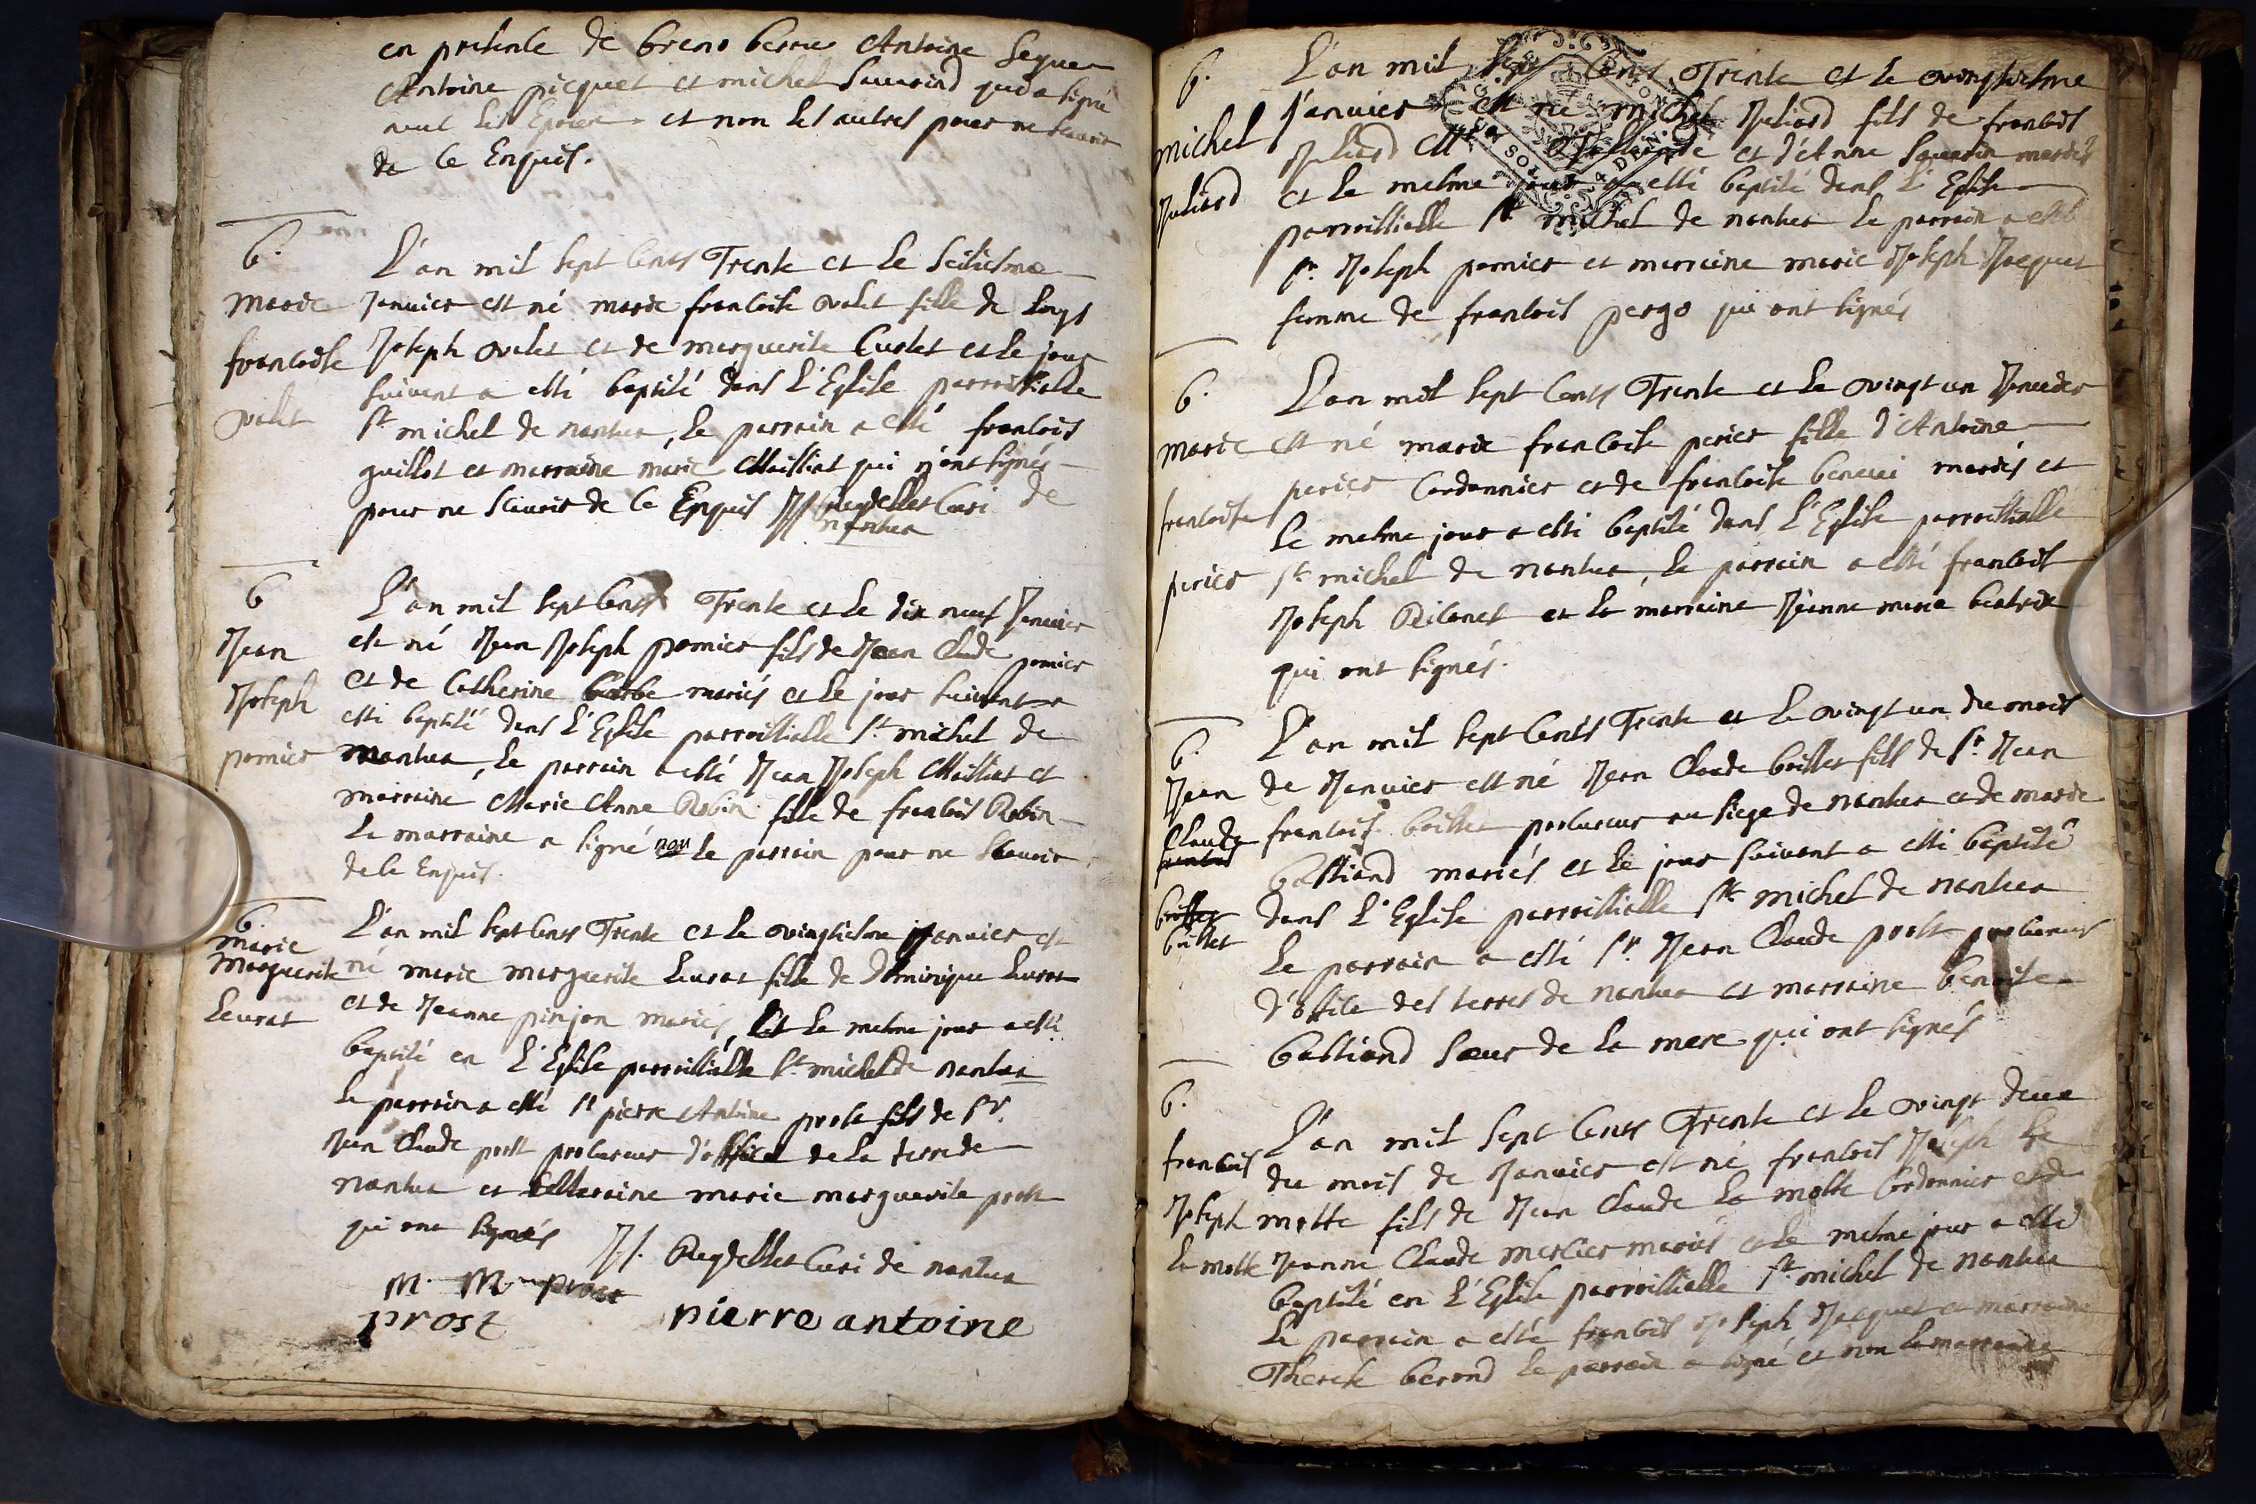 en presence de breno berrue Antoine Seguen
Antoine picquet et michel Sauarind qui a signé
avec les Epoux et non les autres pour ne scavoir
de ce Enquis.
b.
marie
francoise
ovalet
L'an mil sept Cents Trente et le Seisiesme
Janvier est né marie francoise ovalet fille de Loys
Joseph ovalet et de marguerite Curlet et le jour
suivant a esté baptisé dans L'Eglise parroissialle
St michel de nantua, le parrain a esté francois
guillot et marraine marie Maillat qui n'ont signés
pour ne Scavoir de Ce Enquis JJ Reydellet Curé de
nantua
b
Jean
Joseph
pernier
L'an mil sept Cents Trente et le dix neuf Janvier
est né Jean Joseph pernier fils de Jean Claude pernier
et de Catherine barbe mariés et le jour suivant a
esté baptisé dans L'Eglise parroissialle St michel de
nantua, le parrain a esté Jean Joseph Maillat et
marraine Marie Anne Robin fille de francois Robin
la marraine a signé non le parrain pour ne Scavoir
de ce Enquis.
b.
marie
Marguerite
Leurat
L'an mil sept Cents Trente et le vingtiesme janvier est
né marie marguerite Leurat fille de Dominique Leurat
et de Jeanne pinjon mariés, Et le mesme jour a esté
baptisé en L'Eglise parroissialle St michel de nantua
le parrain a esté Sr pierre Antoine prost fils de Sr.
Jean Claude prost procureur d'office de la terre de
nantua et Marraine marie marguerite prost
qui ont signés JJ. Reydellet Curé de nantua
M. M. prost
prost pierre antoine
b.
michel
Juliard
L'an mil sept Cents Trente et le vingtiesme
Janvier est né michel Juliard fils de francois
Juliard et d'Anne mariés
et le mesme jour a esté baptisé dans L'Eglise
parroissialle St michel de nantua le parrain a esté
Sr. Joseph pernier et marraine marie Joseph Jacquet
femme de francois pergo qui ont signés
b.
marie
francoise
perier
L'an mil sept Cents Trente et le vingt un Janvier
est né marie francoise perier fille d'Antoine
perier Cordonnier et de francoise beneui mariés et
le mesme jour a esté baptisé dans L'Eglise parroissialle
St michel de nantua, le parrain a esté francois
Joseph Ribonet et la marraine Jeanne marie beatrix
qui ont signés.
b.
Jean
Claude
boillet
L'an mil sept Cents Trente et le vingt un du mois
de Janvier est né Jean Claude boillet fils de Sr. Jean
francois boillet procureur au siege de nantua et de marie
bastiand mariés et le jour suivant a esté baptisé
dans L'Eglise parroissialle St michel de nantua
le parrain a esté Sr. Jean Claude prost procureur
d'office des terres de nantua et marraine benoite
bastiand soeur de la mere qui ont signés
b.
francois
Joseph
la motte
L'an mil sept Cents Trente et le vingt deux
du mois de Janvier est né francois Joseph la
motte fils de Jean Claude la motte Cordonnier et de
Jeanne Claude mercier mariés et le mesme jour a esté
baptisé en L'Eglise parroissialle St michel de nantua
le parrain a esté francois Joseph Jacquet et marraine
Therese berond le parrain a signé et non la marraine